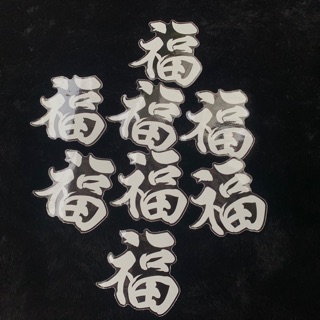 福
福福福
福福福
福